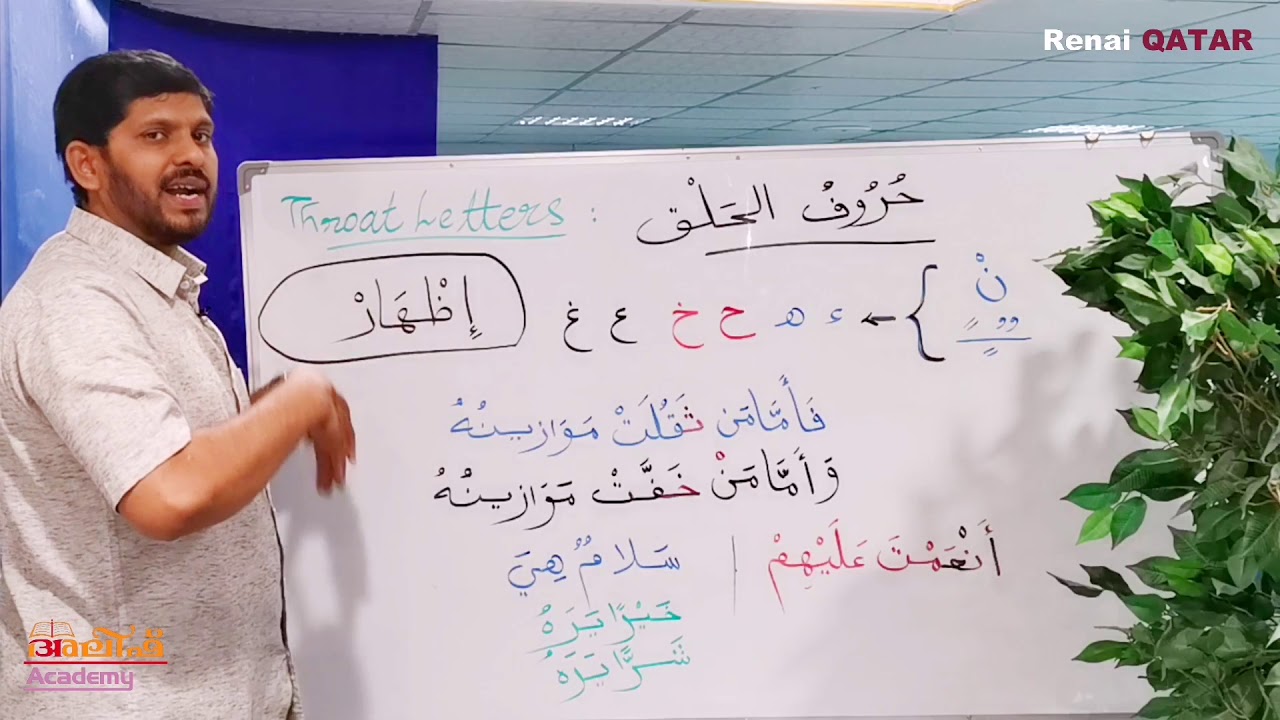 Renai QATAR
Throat Letters : حُرُوفُ الحَلْق
نْ ـًـٍـٌ } ← ء هـ ح خ ع غ إِظْهَارْ
فَأَمَّا مَن ثَقُلَتْ مَوَازِينُهُ
وَأَمَّا مَنْ خَفَّتْ مَوَازِينُهُ
أَنْعَمْتَ عَلَيْهِمْ | سَلامٌ هِيَ
خَيْرًا يَرَهُ
شَرًّا يَرَهُ
അലിഫ്
Academy